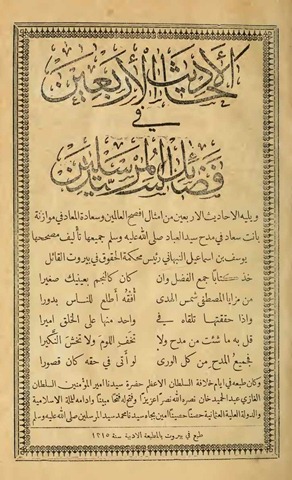 الأحاديث الأربعين
في
فضائل سيد المرسلين
ويليه الاحاديث الاربعين من امثال افصح العالمين وسعادة المعاد في موازنة
بانت سعاد في مدح سيد العباد صلى الله عليه وسلم جميعها تأليف مصححها
يوسف بن اسماعيل النبهاني رئيس محكمة الحقوق في بيروت القائل
خذ كتابا جمع الفضل وان كان كالنجم بعينيك صغيرا
من مزايا المصطفى شمس الهدى أفقه أطلع للناس بدورا
واذا حققتها تلقاه في واحد منها على الخلق اميرا
قل به ما شئت من مدح ولا تخف اللوم ولا تخش النكيرا
فجميع المدح من كل الورى لو أتى في حقه كان قصورا
وكان طبعه في ايام خلافة السلطان الاعظم حضرة سيدنا امير المؤمنين السلطان
الغازي عبد الحميد خان نصره الله نصرا عزيزا وفتح له فتحا مبينا وادامه للملة الاسلامية
والدولة العلية العثمانية حصنا حصينا امين بجاه سيدنا محمد سيد المرسلين صلى الله عليه وسلم
طبع في بيروت بالمطبعة الادبية سنة ١٣١٥